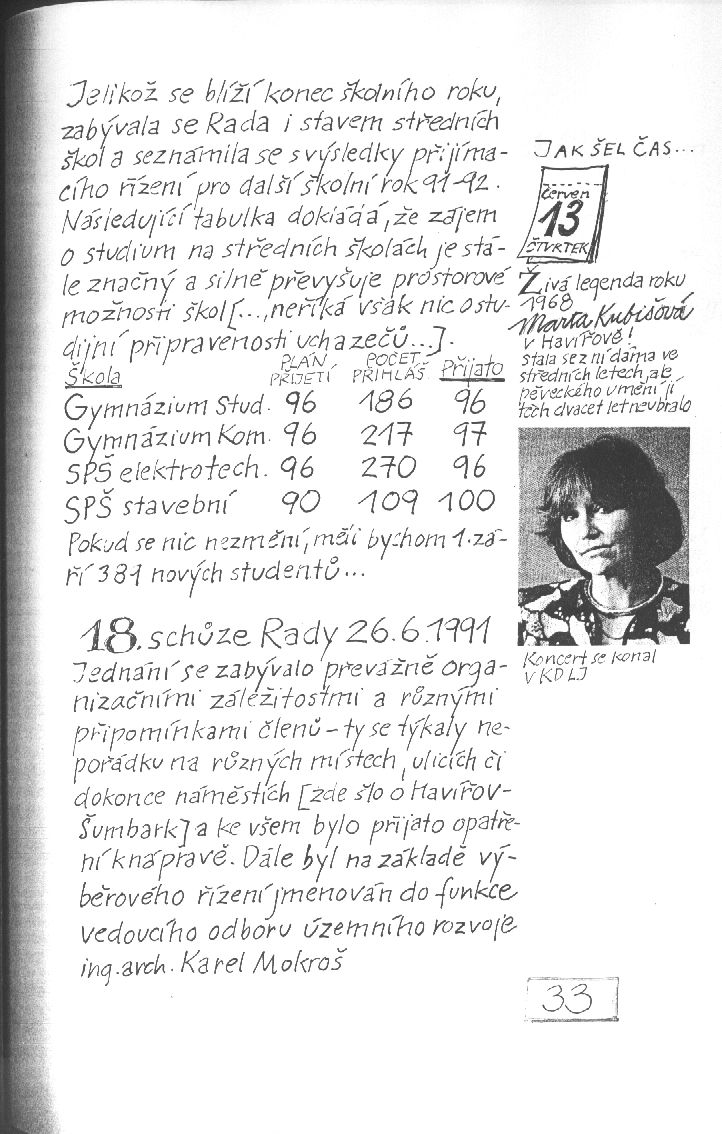 Jelikož se blíží konec školního roku,
zabývala se Rada i stavem středních
škol a seznámila se s výsledky přijíma-
cího řízení pro další školní rok 91-92.
Následující tabulka dokládá, že zájem
o studium na středních školách je stá-
le značný a silně převyšuje prostorové
možnosti škol [..., neříká však nic o stu-
dijní připravenosti uchazečů...].
Škola PLÁN PŘIJETÍ POČET PŘIHLÁŠ. Přijato
Gymnázium Stud. 96 186 96
Gymnázium Kom. 96 217 97
SPŠ elektrotech. 96 270 96
SPŠ stavební 90 109 100
Pokud se nic nezmění, měli bychom 1. zá-
ří 381 nových studentů...
18. schůze Rady 26.6.1991
Jednání se zabývalo převážně orga-
nizačními záležitostmi a různými
připomínkami členů - ty se týkaly ne-
pořádku na různých místech, ulicích či
dokonce náměstích [zde šlo o Havířov-
Šumbark] a ke všem bylo přijato opatře-
ní k nápravě. Dále byl na základě vý-
běrového řízení jmenován do funkce
vedoucího odboru územního rozvoje
ing. arch. Karel Mokroš
JAK ŠEL ČAS...
červen
13
ČTVRTEK
Živá legenda roku
1968
Marta Kubišová
v Havířově!
stala se z ní dáma ve
středních letech, ale
pěveckého umění jí
těch dvacet let neubralo
Koncert se konal
v KD LJ
33